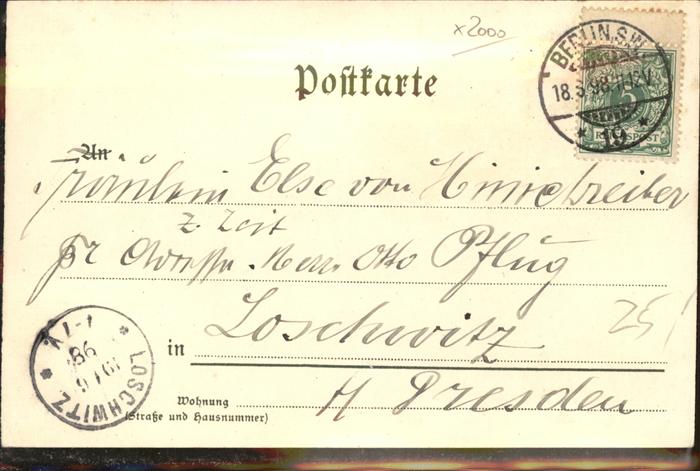 x2000
BERLIN, S.W.
18.3.98. 11-12V.
* 19 *
5
Poſtkarte
An
Fräulein Else von
z. Zeit
pr Adresse. Herrn Otto Pflug
Loschwitz
in
25
Wohnung
(Straße und Hausnummer)
H Dresden
* LOSCHWITZ *
98